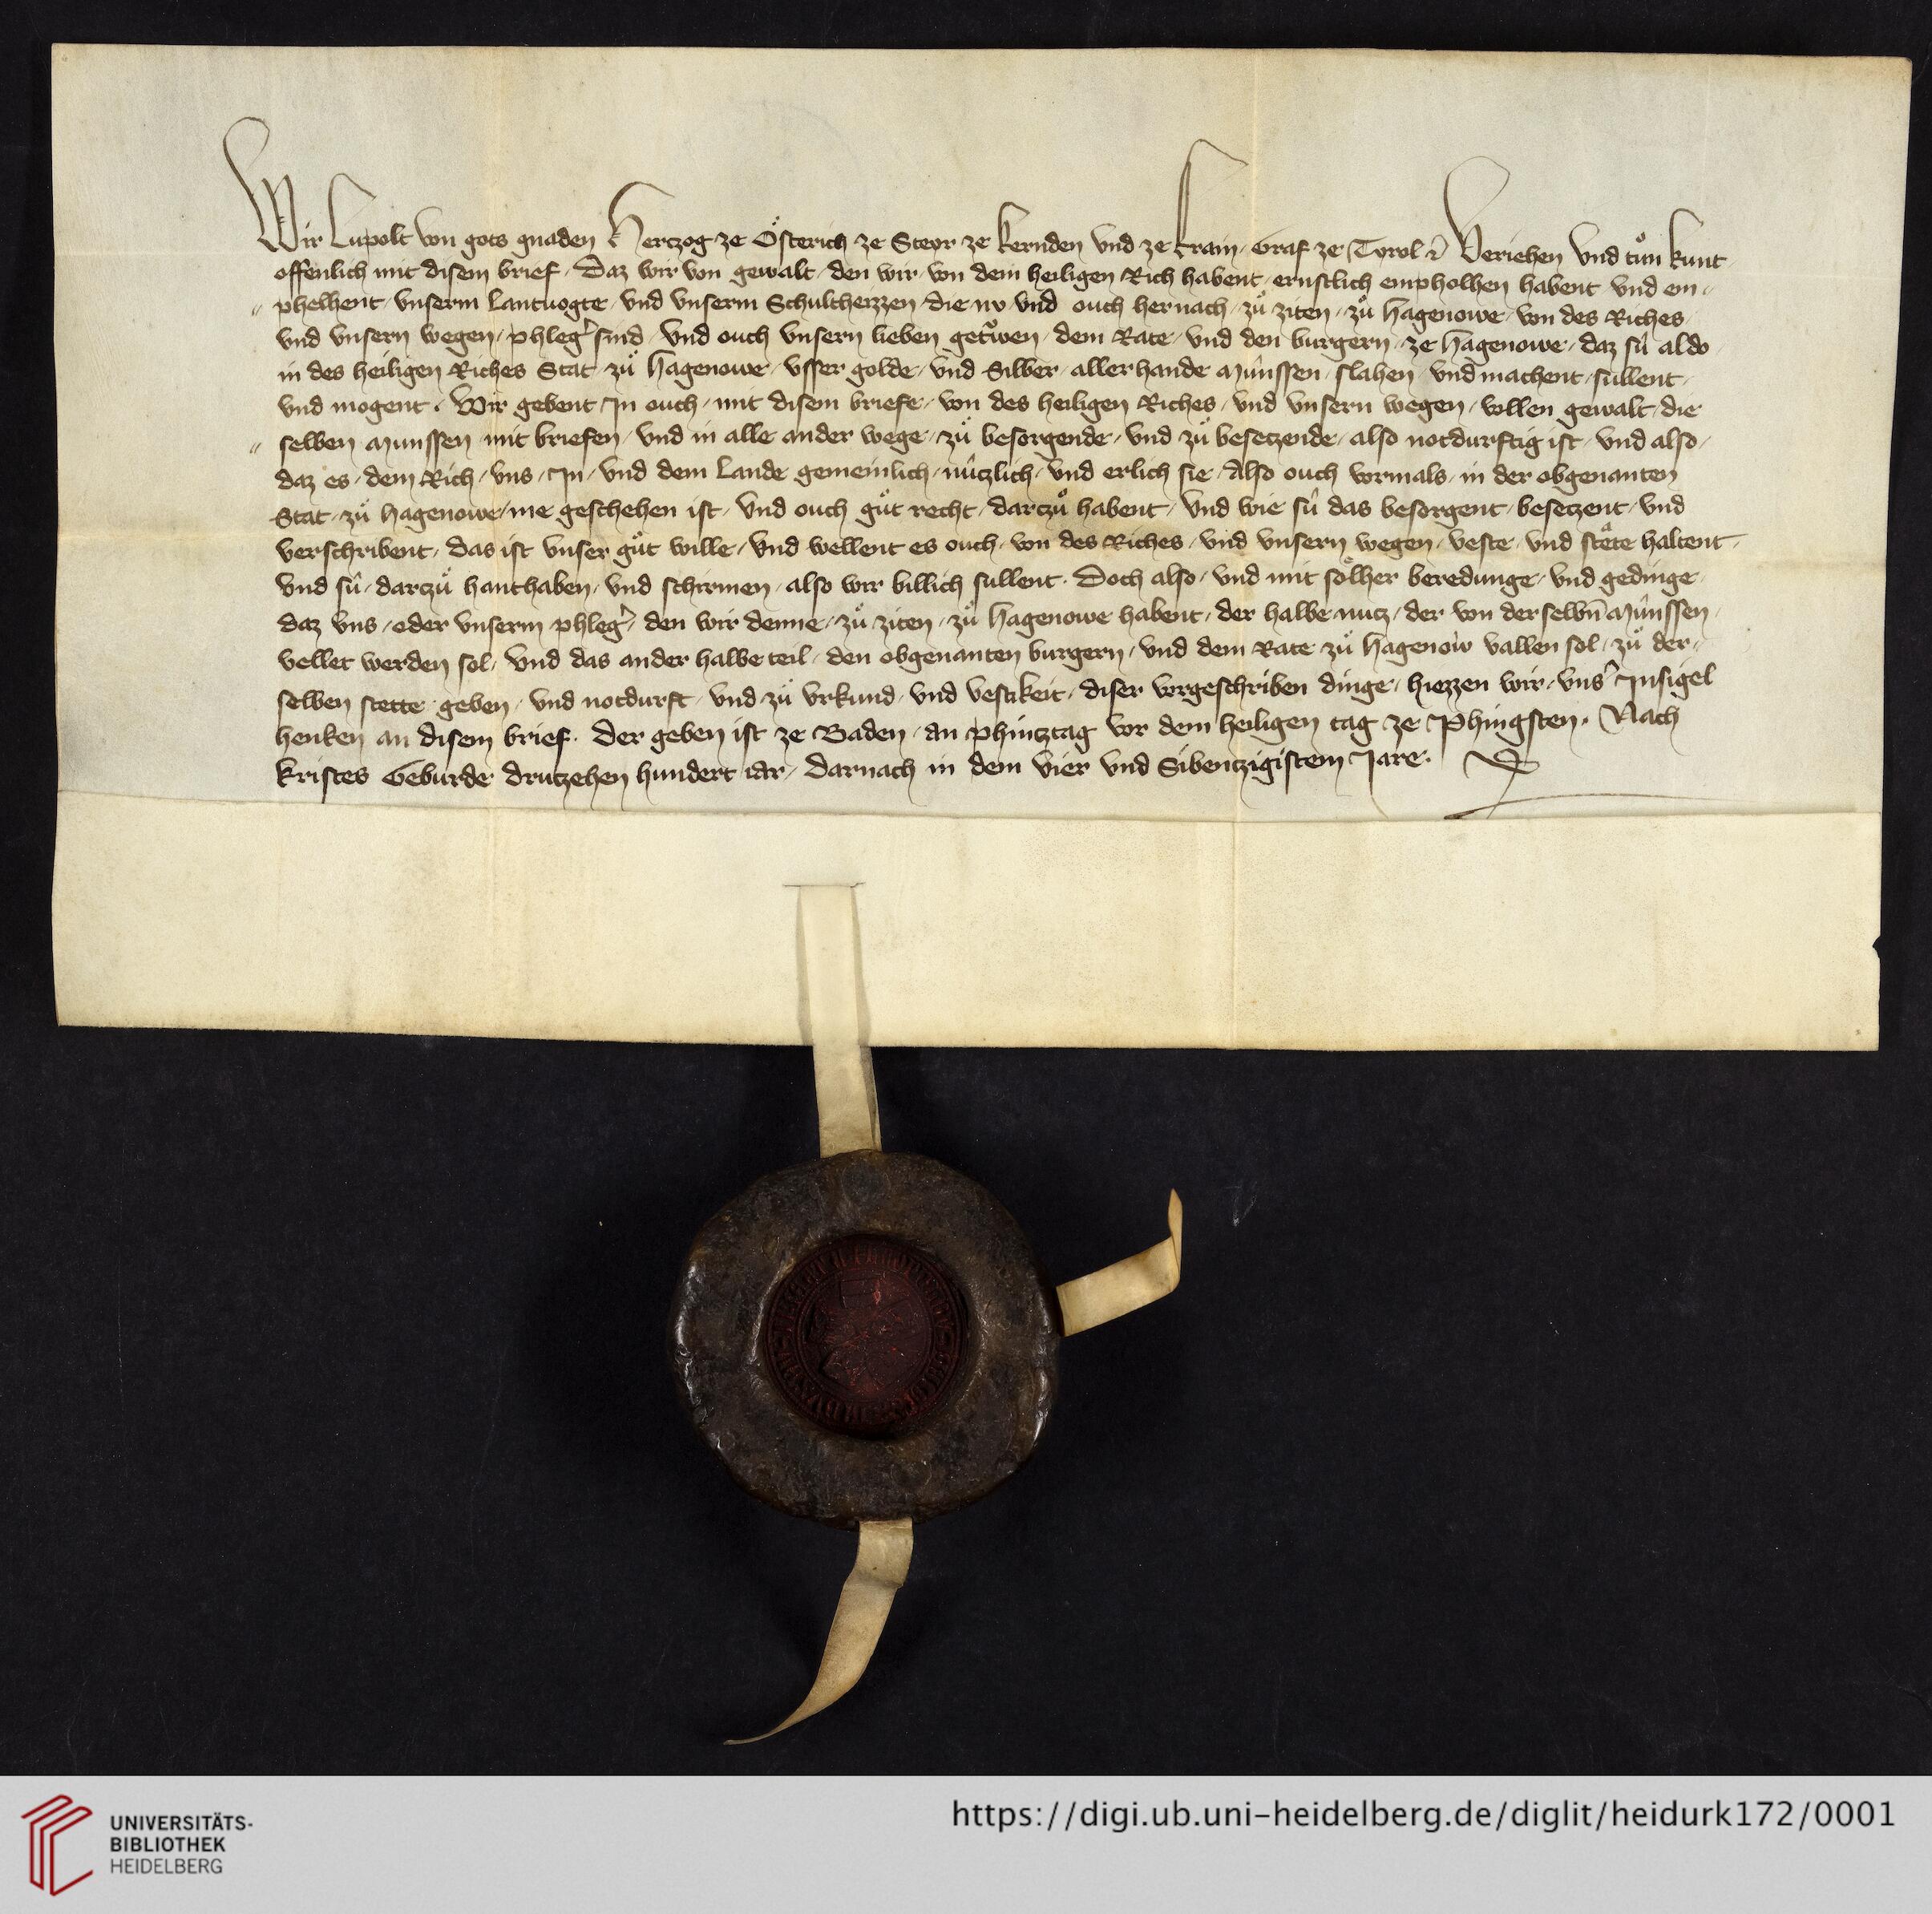 Wir Lupolt von gots gnaden Hertzog ze Österich ze Steyr ze kernden vnd ze krain, Graf ze Tyrol etc̃ Veriehen vnd tůn kunt
offenlich mit disem brief, Daz wir von gewalt, den wir, von dem heiligen Rich habent, ernstlich empholhen habent vnd em„
„phelhent, vnserm Lantuogte, vnd vnserm Schultheizzen, die nv, vnd ouch hernach, zů ziten, zů hagenowe, von des Riches,
vnd vnsern wegen, phleg͛ sind, vnd ouch vnsern lieben getrwen, dem Rate, vnd den burgern, ze hagenowe, daz sů aldo,
in des heiligen Riches Stat, zů hagenowe, vsser golde, vnd Silber, aller hande Můnssen, slahen, vnd machent, sullent,
vnd mogent. Wir gebent Jn ouch, mit disem briefe, von des heiligen Riches, vnd vnsern wegen, vollen gewalt, die
„ selben Munssen, mit briefen, vnd in alle ander wege, zů besorgende, vnd zů besetzende, also notdurftig ist, vnd also,
daz es, dem Rich, vns, Jn, vnd dem Lande gemeinlich, nůtzlich, vnd erlich sie, Also ouch vormals, in der obgenanten
Stat, zů hagenowe, me geschehen ist, vnd ouch gůt recht, dartzů habent, vnd wie sů das besorgent, besetzent, vnd
verschribent, das ist vnser gůt wille, vnd wellent es ouch, von des Riches, vnd vnsern wegen, veste, vnd stête haltent,
vnd sů, dartzů hanthaben, vnd schirmen, also wir billich sullent. Doch also, vnd mit sölher beredunge, vnd gedinge,
daz vns, oder vnserm phleg͛, den wir denne, zů ziten, zů hagenowe habent, der halbe nutz, der von der selbn̄ Můnssen,
vellet werden sol, vnd das ander halbe teil, den obgenanten burgern, vnd dem Rate zů hagenow vallen sol, zů der,
selben stette geben, vnd notdurft, vnd zů vrkund, vnd vestikeit, diser vorgeschriben dinge, hiezzen wir, vns͛ Jnsigel
henken an disem brief. Der geben ist ze Baden, an phintztag vor dem heiligen tag ze Phingsten. Nach
kristes Geburde drutzehen hundert iar, darnach in dem vier vnd Sibentzigistem Jare.
UNIVERSITÄTS-
BIBLIOTHEK
HEIDELBERG
https://digi.ub.uni-heidelberg.de/diglit/heidurk172/0001